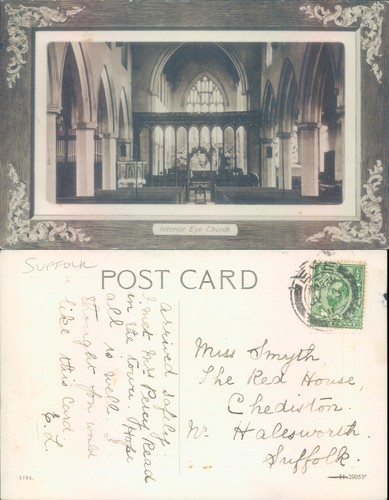 Interior Eye Church.
SUFFOLK
POST CARD
arrived safely.
I met Mrs Read
in the town. Hope
all is well. I
thought you would
like this card
E. L.
Miss Smyth
The Red House,
Chediston.
Nr. Halesworth.
Suffolk.